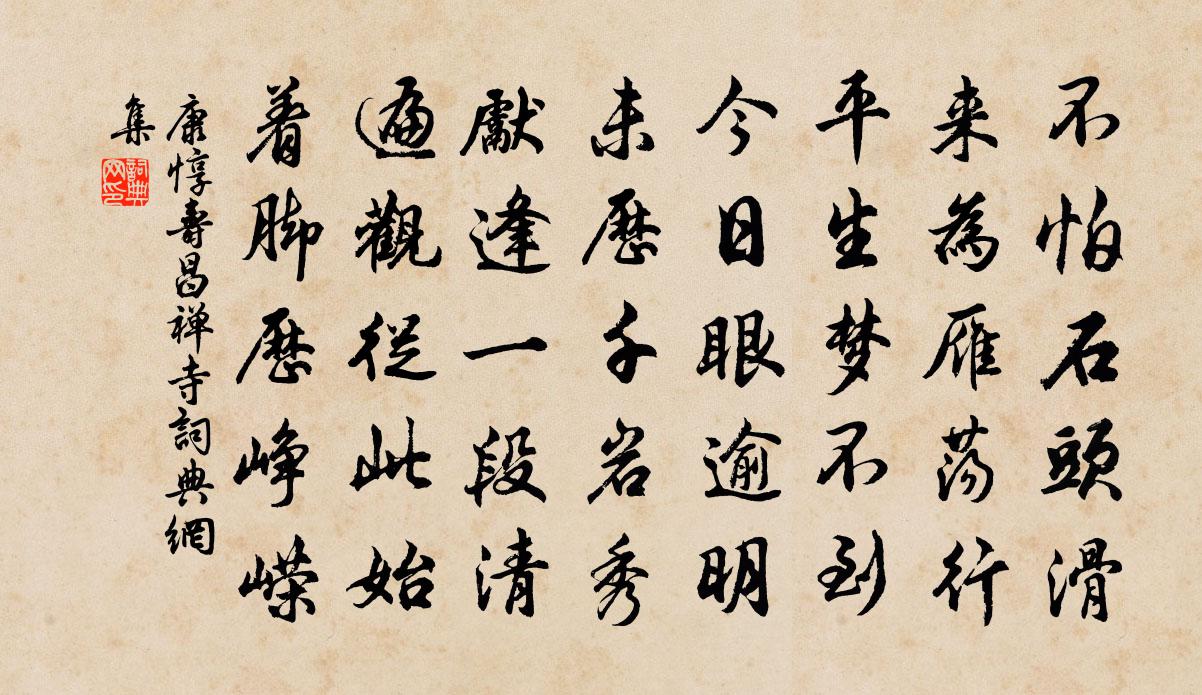 不怕石頭滑
来為雁蕩行
平生梦不到
今日眼逾明
未歷千岩秀
獻逢一段清
遍觀從此始
着脚歷峥嶸
康惇壽昌禅寺詞典網
集
詞典網印